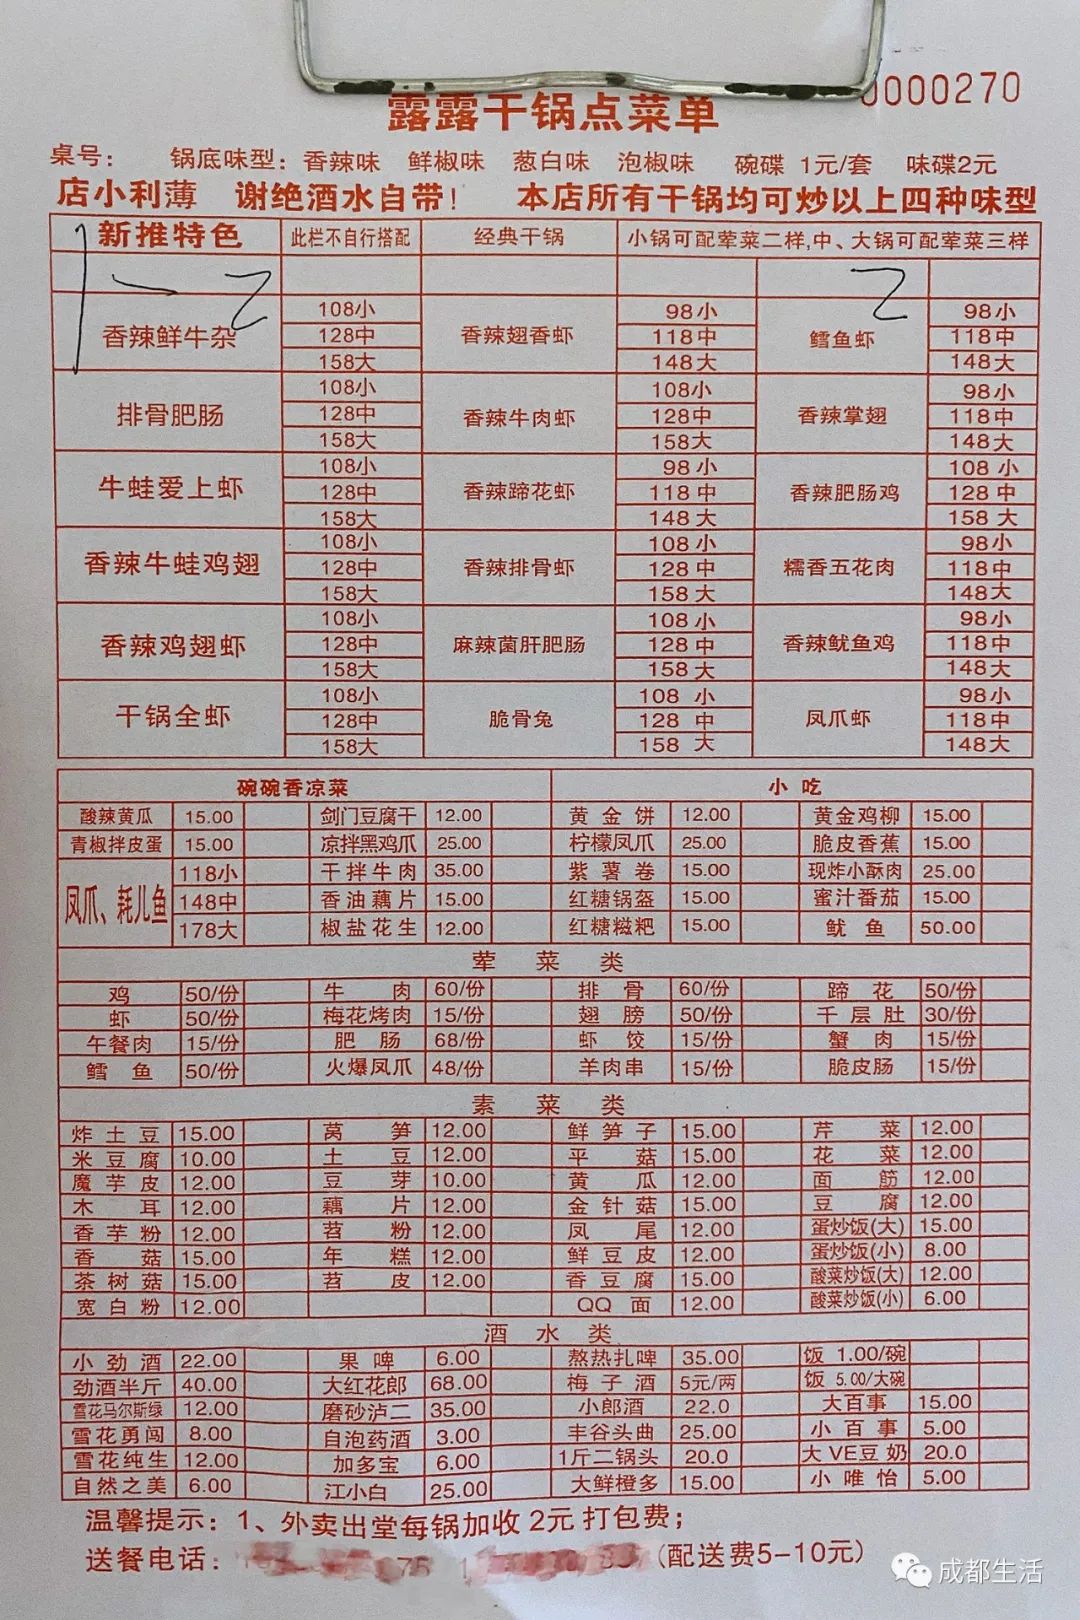 0000270
露露干锅点菜单
桌号: 锅底味型: 香辣味 鲜椒味 葱白味 泡椒味 碗碟 1元/套 味碟2元
店小利薄 谢绝酒水自带! 本店所有干锅均可炒以上四种味型
新推特色 此栏不自行搭配 经典干锅 小锅可配荤菜二样,中、大锅可配荤菜三样
香辣鲜牛杂 108小 128中 158大 香辣翅香虾 98小 118中 148大 鳕鱼虾 98小 118中 148大
排骨肥肠 108小 128中 158大 香辣牛肉虾 108小 128中 158大 香辣掌翅 98小 118中 148大
牛蛙爱上虾 108小 128中 158大 香辣蹄花虾 98小 118中 148大 香辣肥肠鸡 108小 128中 158大
香辣牛蛙鸡翅 108小 128中 158大 香辣排骨虾 108小 128中 158大 糯香五花肉 98小 118中 148大
香辣鸡翅虾 108小 128中 158大 麻辣菌肝肥肠 108小 128中 158大 香辣鱿鱼鸡 98小 118中 148大
干锅全虾 108小 128中 158大 脆骨兔 108小 128中 158大 凤爪虾 98小 118中 148大
碗碗香凉菜 小吃
酸辣黄瓜 15.00 剑门豆腐干 12.00 黄金饼 12.00 黄金鸡柳 15.00
青椒拌皮蛋 15.00 凉拌黑鸡爪 25.00 柠檬凤爪 25.00 脆皮香蕉 15.00
凤爪、耗儿鱼 118小 148中 178大
干拌牛肉 35.00 紫薯卷 15.00 现炸小酥肉 25.00
香油藕片 15.00 红糖锅盔 15.00 蜜汁番茄 15.00
椒盐花生 12.00 红糖糍粑 15.00 鱿鱼 50.00
荤菜类
鸡 50/份 牛肉 60/份 排骨 60/份 蹄花 50/份
虾 50/份 梅花烤肉 15/份 翅膀 50/份 千层肚 30/份
午餐肉 15/份 肥肠 68/份 虾饺 15/份 蟹肉 15/份
鳕鱼 50/份 火爆凤爪 48/份 羊肉串 15/份 脆皮肠 15/份
素菜类
炸土豆 15.00 莴笋 12.00 鲜笋子 15.00 芹菜 12.00
米豆腐 10.00 土豆 12.00 平菇 15.00 花菜 12.00
魔芋皮 12.00 豆芽 10.00 黄瓜 12.00 面筋 12.00
木耳 12.00 藕片 12.00 金针菇 15.00 豆腐 12.00
香芋粉 12.00 苕粉 12.00 凤尾 12.00 蛋炒饭(大) 15.00
香菇 15.00 年糕 12.00 鲜豆皮 12.00 蛋炒饭(小) 8.00
茶树菇 15.00 苕皮 12.00 香豆腐 15.00 酸菜炒饭(大) 12.00
宽白粉 12.00 QQ面 12.00 酸菜炒饭(小) 6.00
酒水类
小劲酒 22.00 果啤 6.00 熬热扎啤 35.00 饭 1.00/碗
劲酒半斤 40.00 大红花郎 68.00 梅子酒 5元/两 饭 5.00/大碗
雪花马尔斯绿 12.00 磨砂泸二 35.00 小郎酒 22.0 大百事 15.00
雪花勇闯 8.00 自泡药酒 3.00 丰谷头曲 25.00 小百事 5.00
雪花纯生 12.00 加多宝 6.00 1斤二锅头 20.0 大VE豆奶 20.0
自然之美 6.00 江小白 25.00 大鲜橙多 15.00 小唯怡 5.00
温馨提示: 1、外卖出堂每锅加收2元打包费;
送餐电话: (配送费5-10元)
成都生活